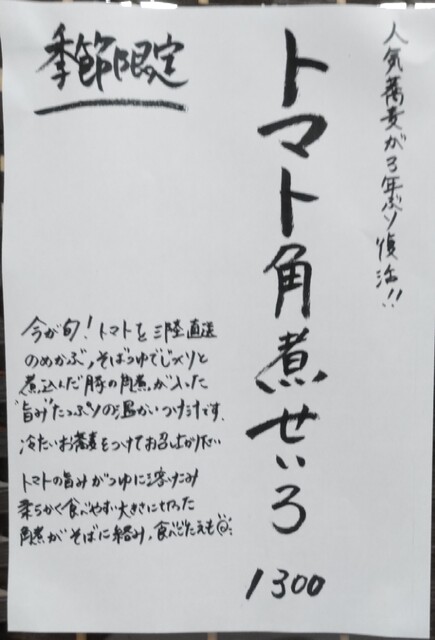 人気蕎麦が3年ぶり復活!!
トマト角煮せいろ
1300
季節限定
今が旬!トマトと三陸直送
のめかぶ,そばつゆでじっくりと
煮込んだ豚の角煮が入った
"旨み"たっぷりの温かいつけ汁です.
冷たいお蕎麦をつけてお召し上がり下さい
トマトの旨みがつゆに溶けこみ
柔らかく食べやすい大きさに切った
角煮がそばに絡み,食べごたえも◎!